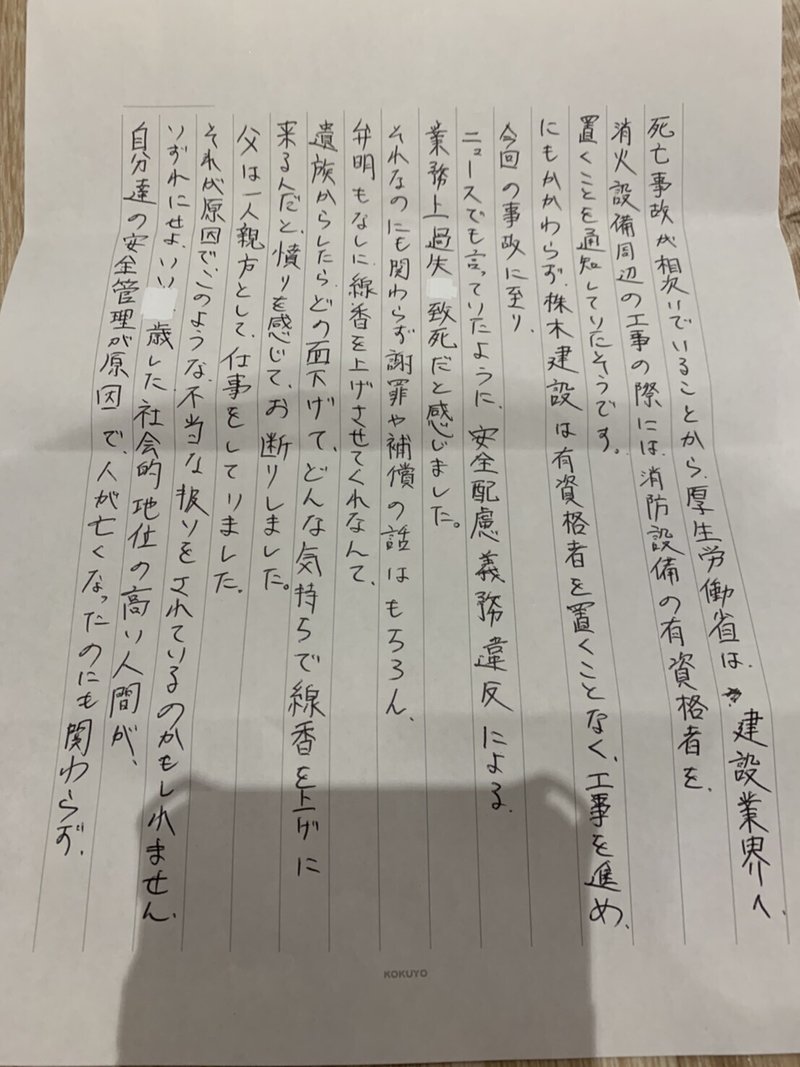 死亡事故が相次いでいることから、厚生労働省は、建設業界へ、
消火設備周辺の工事の際には、消防設備の有資格者を、
置くことを通知していたそうです。
にもかかわらず、株木建設は有資格者を置くことなく、工事を進め、
今回の事故に至り、
ニュースでも言っていたように、安全配慮義務違反による、
業務上過失 致死だと感じました。
それなのにも関わらず謝罪や補償の話はもちろん、
弁明もなしに線香を上げさせてくれなんて、
遺族からしたら、どの面下げて、どんな気持ちで線香を上げに
来るんだと、憤りを感じて、お断りしました。
父は一人親方として、仕事をしていました。
それが原因でこのような、不当な扱いをされているのかもしれません、
いずれにせよ、いい 歳した社会的地位の高い人間が、
自分達の安全管理が原因で、人が亡くなったのにも関わらず、
KOKUYO